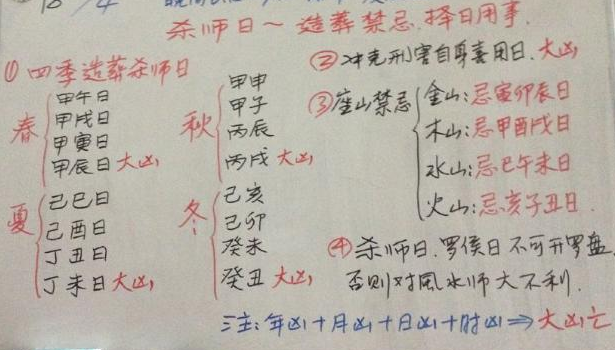 杀师日~造葬禁忌.择日用事.
① 四季造葬杀师日
春
甲午日
甲戌日
甲寅日
甲辰日 大凶
夏
己巳日
己酉日
丁丑日
丁未日 大凶
秋
甲申
甲子
丙辰
丙戌 大凶
冬
己亥
己卯
癸未
癸丑 大凶
② 冲克刑害自身喜用日.大凶
③ 座山禁忌
金山:忌寅卯辰日
木山:忌申酉戌日
水山:忌巳午未日
火山:忌亥子丑日.
④ 杀师日.罗侯日不可开罗盘
否则对風水师大不利.
注:年凶+月凶+日凶+时凶⇒大凶亡